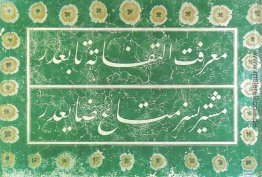 معرفت التفاته تابعدر
مشتريسز متاع ضايعدر